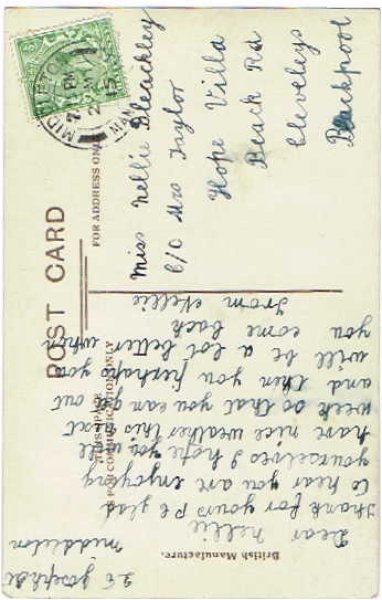 POST CARD
THIS SPACE
IS FOR COMMUNICATION ONLY
FOR ADDRESS ONLY
British Manufacture.
MIDDLETON
PM
Miss Nellie Bleackley
C/O Mrs Taylor
Hope Villa
Beach Rd
Cleveleys
Blackpool
26 Joseph St
Middleton
Dear Nellie
thank for yours P C glad
to hear you are enjoying
yourselves I hope you will
have nice weather this next
week so that you can get out
and then you perhaps you
will be a lot better when
you come back
From Nellie